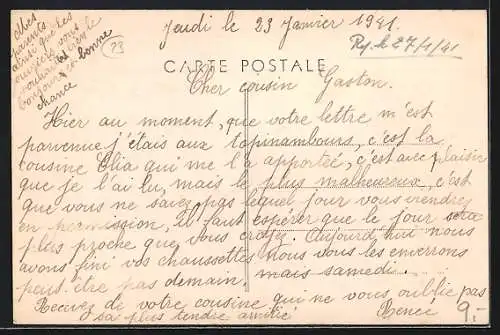 Jeudi le 23 Janvier 1941.
Rep. le 27/1/41
Mes
parents
ainsi que
vous
bonjour et bonne
chance
23
CARTE POSTALE
Cher cousin Gaston.
Hier au moment, que votre lettre m'est
parvenue j'étais aux topinambours, c'est la
cousine Clia qui me l'a apportée, c'est avec plaisir
que je l'ai lu, mais le plus malheureux, c'est
que vous ne savez pas lequel jour vous viendrez
en permission, il faut espérer que le jour sera
plus proche que vous croyez. Aujourd'hui nous
avons fini vos chaussettes nous vous les enverrons
peut être pas demain, mais samedi.
Recevez de votre cousine qui ne vous oublie pas
sa plus tendre amitié Renée
9.-